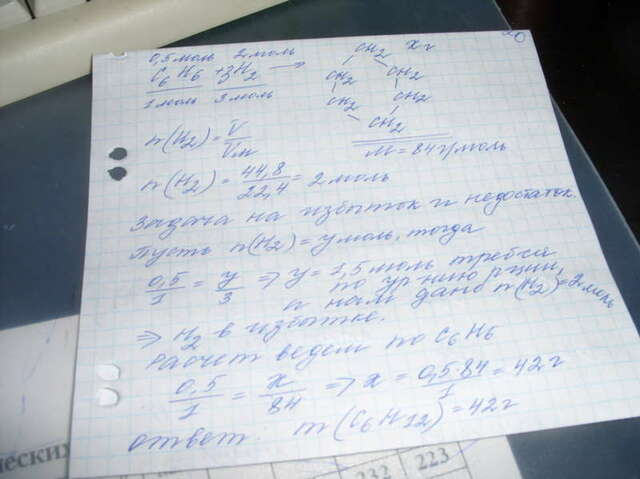 20
0,5 моль 2 моль
C6H6 + 3H2 →
1 моль 3 моль
CH2 x г
CH2 CH2
CH2 CH2
CH2
M = 84 г/моль
n(H2) = V/Vм
n(H2) = 44,8/22,4 = 2 моль
Задача на избыток и недостаток.
Пусть n(H2) = y моль, тогда
0,5/1 = y/3 ⇒ y = 1,5 моль требся
по ур-нию р-ции,
а нам дано n(H2) = 2 моль
⇒ H2 в избытке.
Расчёт ведем по C6H6
0,5/1 = x/84 ⇒ x = 0,5·84/1 = 42 г
ответ: m(C6H12) = 42 г
ческих
232 223